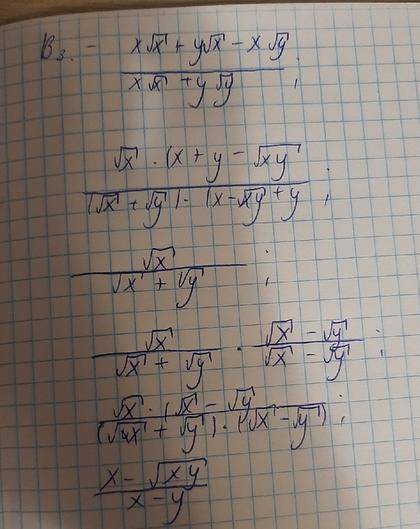 В₃. - x√x + y√x - x√y
x√x + y√y ;
√x · (x + y - √xy
(√x + √y) · (x - √xy + y ;
√x
√x + √y ;
√x / √x + √y · √x - √y / √x - √y ;
√x · (√x - √y
(√x + √y) · (√x - √y) ;
x - √xy
x - y